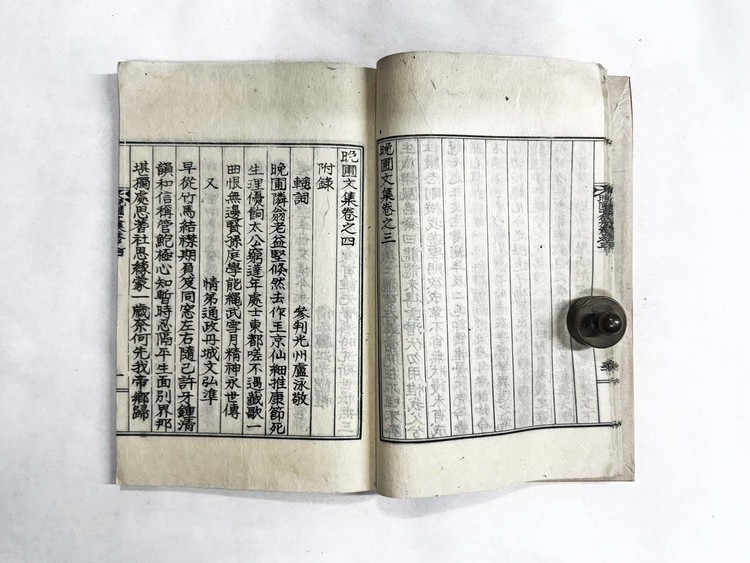 晩圃文集卷之三
晩圃文集卷之四
附錄
輓詞
參判光州盧泳敬
晩圃隣翁老益堅倏然去作玉京仙細推康節死
生理優餉太公窮達年處士東都嗟不遇載歌一
田恨無邊賢孫庭學能繩武雪月精神永世傳
又
情弟通政丹城文弘準
早從竹馬結襟期負笈同窓左右隨己許牙鍾淸
韻和信稱管鮑極心知暫時忍隔平生面別界那
堪獨處思著社思緣蒙一歲奈何先我帝鄕歸